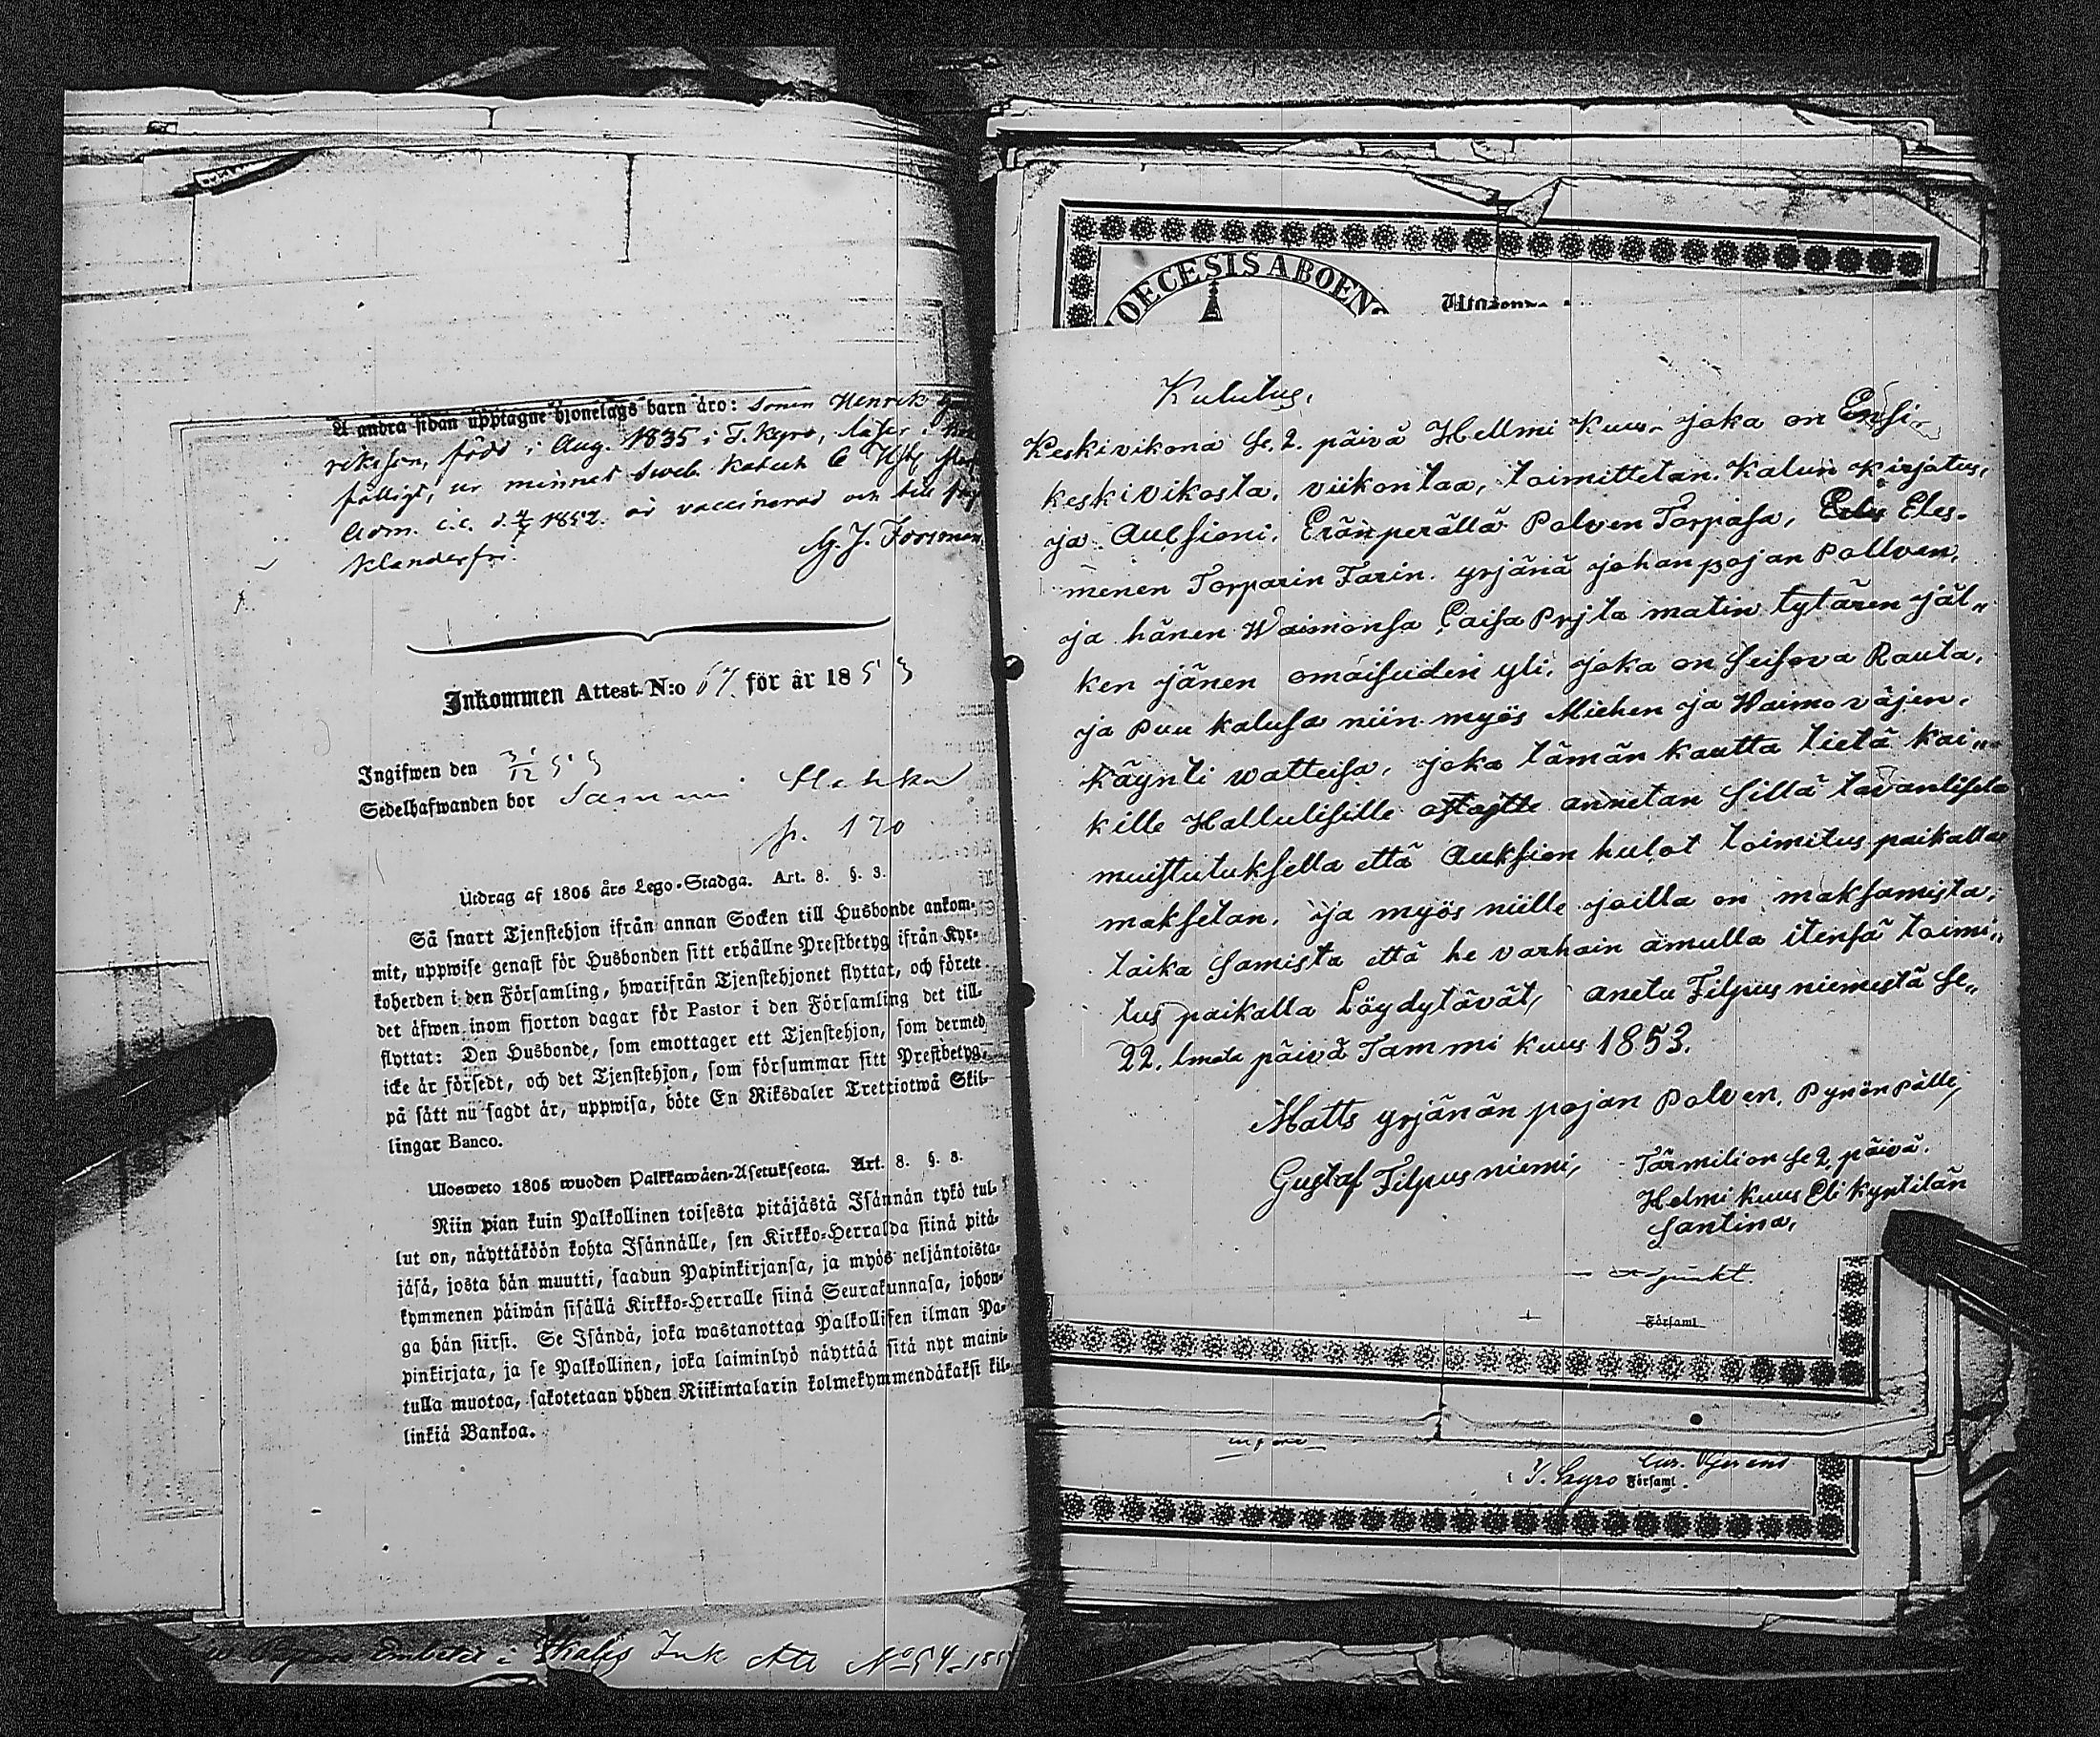 Å andra sidan upptagne hjonelags barn äro: sonen Henrik
rikssen, född i Aug. 1835 i T. Kyro, läser i
fälligt, ur minnet Sveb. Katech
Adm. d. 4/7 1852. är vaccinerad och till
klanderfri.
G. J. Forsman
Inkommen Attest N:o 67. för år 1853
Ingifwen den 31/12 53
Sedelhafwanden bor Sammi
p. 170
Utdrag af 1805 års Lego-Stadga. Art. 8. §. 3.
Så snart Tjenstehjon ifrån annan Socken till Husbonde ankom-
mit, uppwise genast för Husbonden sitt erhållne Prestbetyg ifrån Kyr-
koherden i den Församling, hwarifrån Tjenstehjonet flyttat, och förete
det äfwen inom fjorton dagar för Pastor i den Församling det till-
flyttat: Den Husbonde, som emottager ett Tjenstehjon, som dermed
icke är försedt, och det Tjenstehjon, som försummar sitt Prestbetyg,
på sätt nu sagdt är, uppwisa, böte En Riksdaler Trettiotwå Skil-
lingar Banco.
Ulosweto 1805 wuoden Palkkawäen-Asetuksesta. Art. 8. §. 3.
Niin pian kuin Palkollinen toisesta pitäjästä Isännän tykö tul-
lut on, näyttäköön kohta Isännälle, sen Kirkko-Herralda siinä pitä-
jäsä, josta hän muutti, saadun Papinkirjansa, ja myös neljäntoista-
kymmenen päiwän sisällä Kirkko-Herralle siinä Seurakunnasa, johon-
ga hän siirsi. Se Isändä, joka wastanottaa Palkollisen ilman Pa-
pinkirjata, ja se Palkollinen, joka laiminlyö näyttää sitä nyt maini-
tulla muotoa, sakotetaan yhden Riikintalarin kolmekymmendäkaksi kil-
linkiä Bankoa.
i Ikalis Ink Att No 54 185
OECESIS ABOENS
Kulutus,
Keskivikona se. 2. päivä Hellmi Kuus. joka on Ensi.
keskivikosta, viikontaa, toimittetan. Kalun Kirjatus,
ja Auksioni, Eränperällä Polven Torpasa, Eles-
menen Torparin Farin. yrjänä johanpojan Pollven,
ja hänen Waimonsa Caisa Prjta matin tytären jäl„
ken jänen omaisuden yli, joka on seisova Rauta,
ja Puu kalusa niin myös Miehen ja Waimoväjen,
Käynti watteisa, joka tämän kautta tietä kai„
kille Hallulisille annetan sillä tavanlisela
muistutuksella että Auksion hulot toimitus paikalla
maksetan, ja myös niille joilla on maksamista,
taika Samista että he varhain amulla itensä toimi„
tus paikalla Löydytävät, anetu Filpusniemestä se„
22. lmata päivä Tammi kuus 1853.
Matts yrjänän pojan Polven, Pynönpälle,
Gustaf Filpusniemi,
Tärmilion se 2. päivä.
Helmi kuus Eli kyntilän
Santina,
Adjunkt.
Församl.
i T. Kyro Församl.